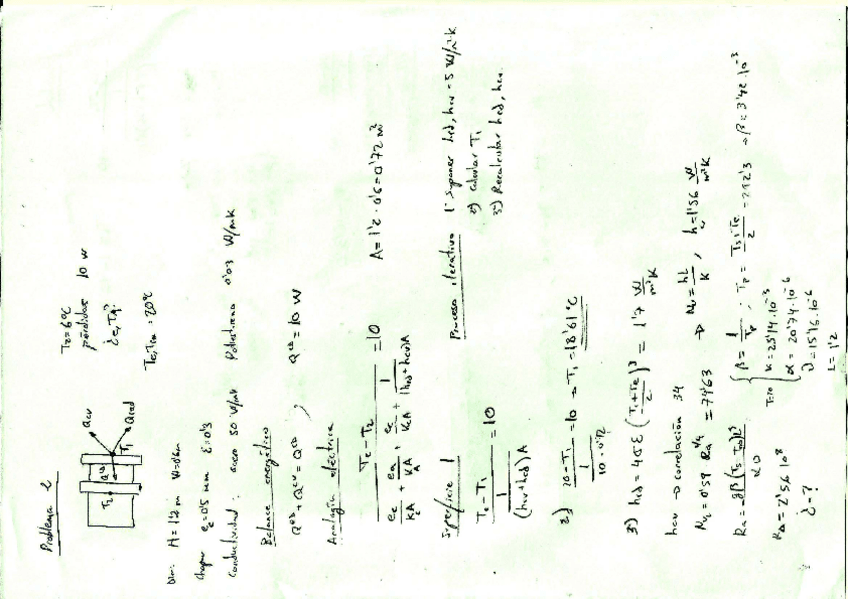 Problema 2
T2 = 6ºC
pérdidas 10 W
¿e, T1?
Te, T∞ = 20ºC
Qcv
Qrad
Qcd
T2
T1
Dim: H = 1'2 m W = 0'6 m
chapas ec = 0'5 mm ε = 0'3
Conductividad: acero 50 W/mK Poliestireno 0'03 W/mK
Balance energético
Qrad + Qcv = Qcd ; Qcd = 10 W
Analogía eléctrica
Te - T2 = 10
ec/KcA + ea/KA + ec/KcA + 1/(hrd + hcv)A
A = 1'2 · 0'6 = 0'72 m²
Superficie 1
Te - T1 = 10
1/(hcv + hrd)A
Proceso iterativo
1º Suponer hrd, hcv = 5 W/m²K
2º) Calcular T1
3º) Recalcular hrd, hcv.
2) 20 - T1 = 10 → T1 = 18'61ºC
1/10 · 0'72
3º) hrd = 4σε ((T1 + Te)/2)³ = 1'7 W/m²K
hcv → correlación 34
NuL = 0'59 Ra^1/4 = 74'63 → Nu = hL/K , h = 1'56 W/m²K
Ra = gβ(Ts - T∞)L³/αυ
β = 1/Tp ; Tp = (Ts + Te)/2 = 292'3 → β = 3'42 · 10⁻³
k = 25'14 · 10⁻³
α = 20'74 · 10⁻⁶
υ = 15'16 · 10⁻⁶
L = 1'2
Ra = 2'56 10⁸
¿ = ?